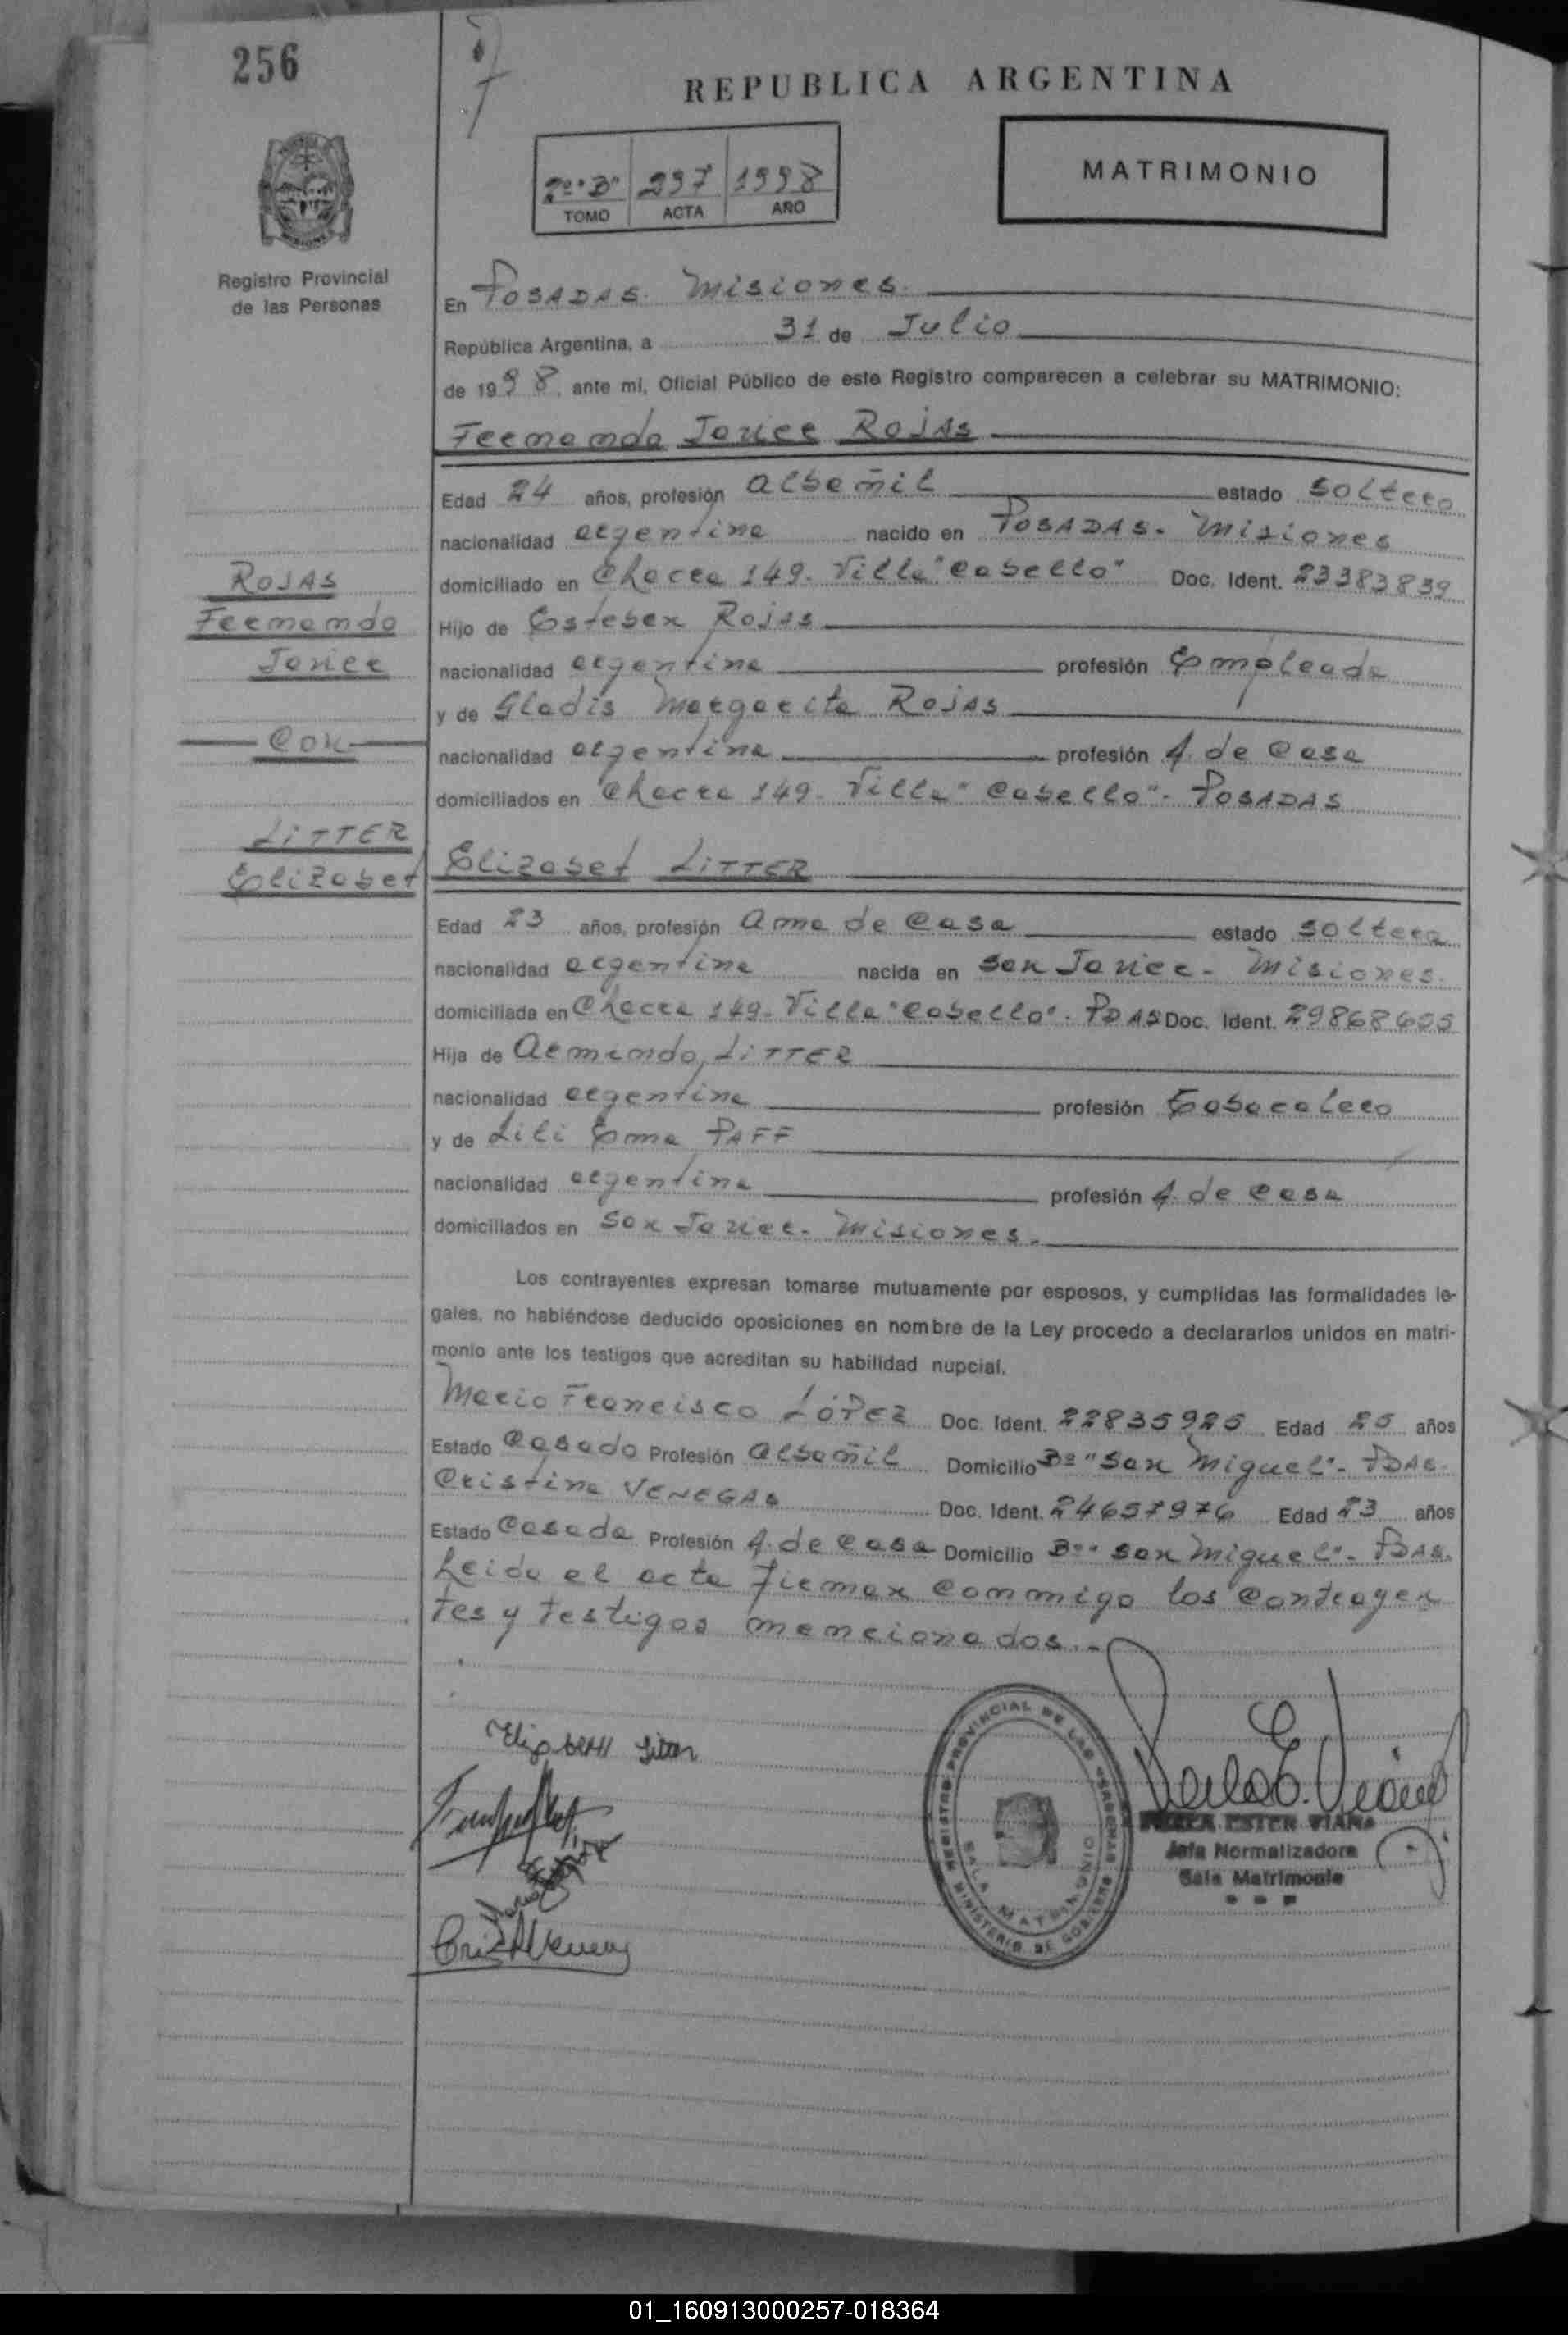 256
REPUBLICA ARGENTINA
2º "B" 297 1998
TOMO ACTA AÑO
MATRIMONIO
Registro Provincial
de las Personas
En POSADAS. Misiones.
República Argentina, a 31 de Julio
de 1998, ante mi, Oficial Público de este Registro comparecen a celebrar su MATRIMONIO:
Fernando Javier ROJAS
Edad 24 años, profesión albañil estado soltero
nacionalidad argentina nacido en POSADAS. Misiones
domiciliado en Chacra 149. Villa "Cabello" Doc. Ident. 23383839
Hijo de Esteban ROJAS
nacionalidad argentina profesión Empleado
y de Gladis Margarita ROJAS
nacionalidad argentina profesión A. de Casa
domiciliados en Chacra 149. Villa "Cabello". POSADAS
ROJAS
Fernando
Javier
CON
LITTER
Elizabet
Elizabet LITTER
Edad 23 años, profesión Ama de Casa estado soltera
nacionalidad argentina nacida en San Javier. Misiones.
domiciliada en Chacra 149. Villa "Cabello". PDAS Doc. Ident. 29868605
Hija de Armindo LITTER
nacionalidad argentina profesión Tabacalero
y de Lili Ema PAFF
nacionalidad argentina profesión A. de Casa
domiciliados en San Javier. Misiones.
Los contrayentes expresan tomarse mutuamente por esposos, y cumplidas las formalidades le-
gales, no habiéndose deducido oposiciones en nombre de la Ley procedo a declararlos unidos en matri-
monio ante los testigos que acreditan su habilidad nupcial.
Mario Francisco LÓPEZ Doc. Ident. 22835925 Edad 25 años
Estado Casado Profesión albañil Domicilio Bº "San Miguel". PDAS.
Cristina VENEGAS Doc. Ident. 24657976 Edad 23 años
Estado Casada Profesión A. de Casa Domicilio Bº "San Miguel". PDAS.
Leida el acta firman conmigo los contrayen
tes y testigos mencionados.
REGISTRO PROVINCIAL DE LAS PERSONAS
SALA MATRIMONIO
MINISTERIO DE GOBIERNO
ESTER VIANA
Jefa Normalizadora
Sala Matrimonio
01_160913000257-018364